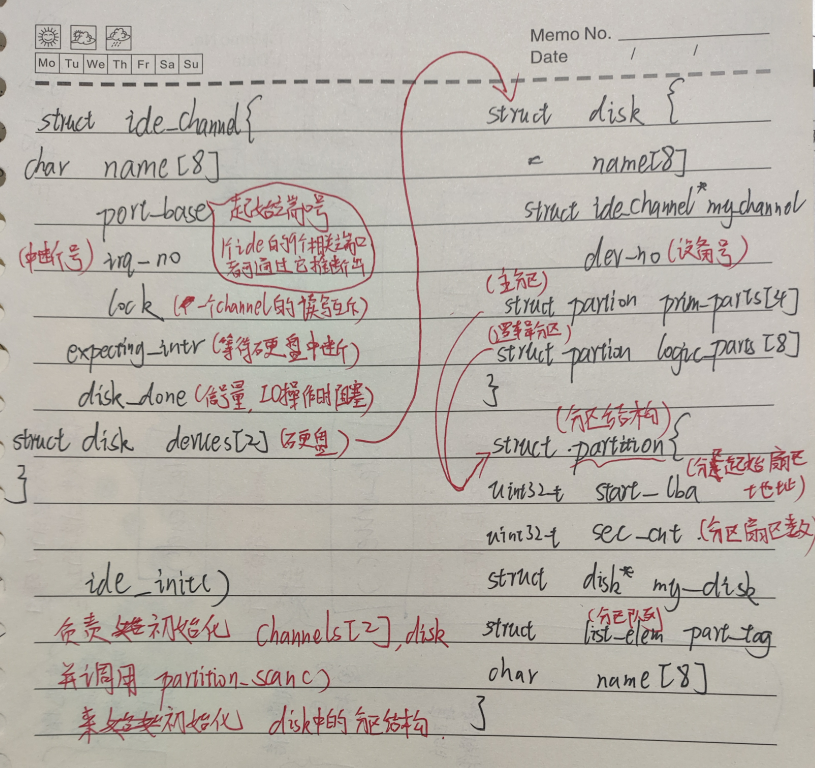 Mo Tu We Th Fr Sa Su
Memo No.
Date / /
struct ide_channel{
char name[8]
port_base 起始端口号
片ide的9个相关端口
都可通过它推断出
(中断号) irq_no
lock (一个channel的读写互斥)
expecting_intr (等待硬盘中断)
disk_done (信号量, IO操作时阻塞)
struct disk devices[2] (硬盘)
}
ide_init()
负责初始化 channels[2], disk
并调用 partition_scan()
来初始化 disk中的分区结构
struct disk {
name[8]
struct ide_channel* my_channel
dev_no (设备号)
(主分区)
struct partion prim_parts[4]
(逻辑分区)
struct partion logic_parts[8]
}
(分区结构)
struct partition{
uint32_t start_lba (分区起始扇区地址)
uint32_t sec_cnt (分区扇区数)
struct disk* my_disk
(分区队列)
struct list_elem part_tag
char name[8]
}